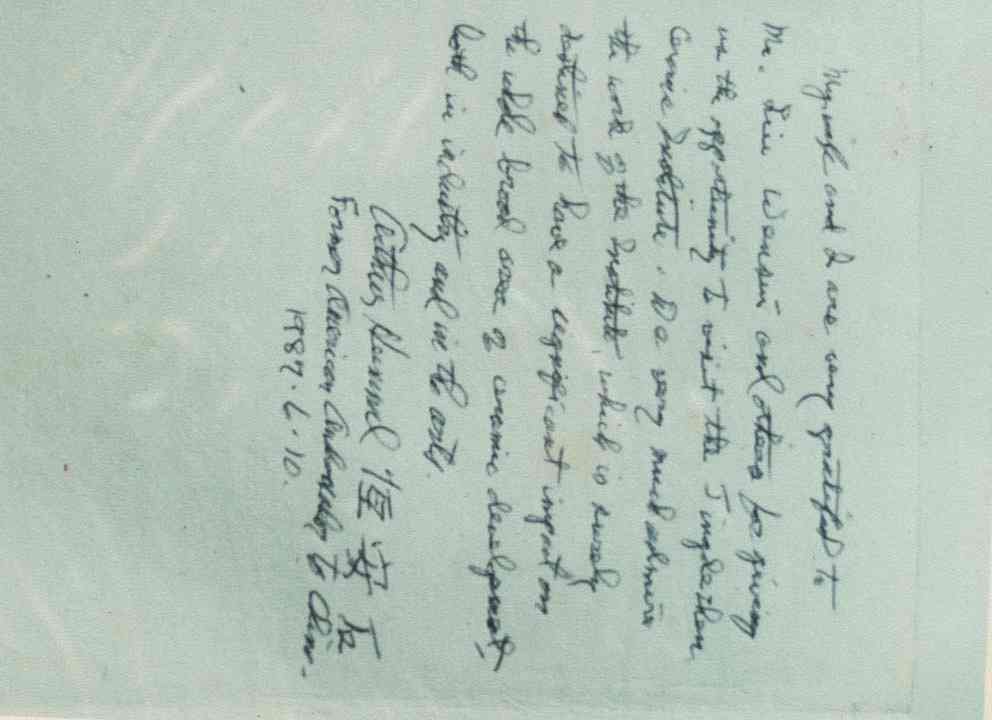 My wife and I are very gratified to
Mr. Liu Wenxin and others for giving
us the opportunity to visit the Jingdezhen
Ceramic Institute. We very much admire
the work of the Institute, which is surely
destined to have a significant impact on
the whole broad area of ceramic development,
both in industry and in the arts.
Arthur Hummel 恒安石
Former American Ambassador to China.
1987.6.10.